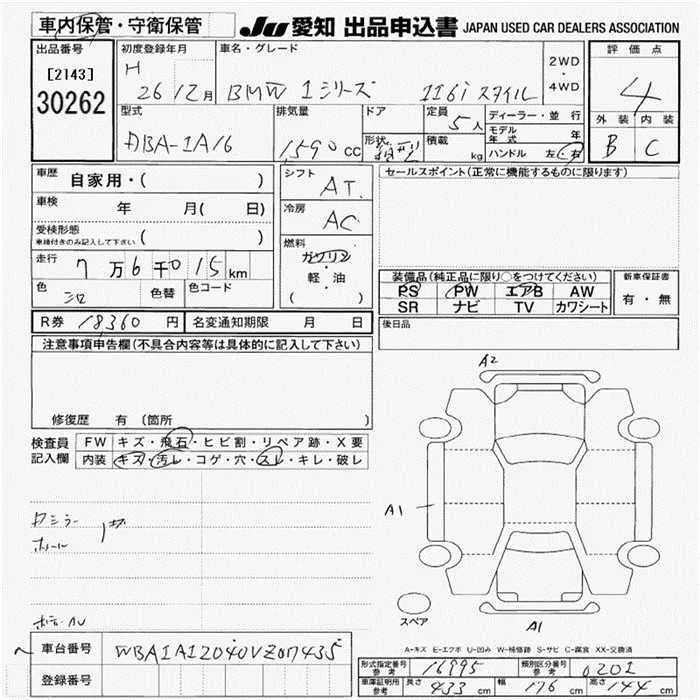 車内保管・守衛保管
JU愛知 出品申込書 JAPAN USED CAR DEALERS ASSOCIATION
出品番号
[2143]
30262
初度登録年月
H
26 12月
車名・グレード
BMW 1シリーズ 116i スタイル
2WD
・
4WD
評価点
4
外装 内装
B C
型式
DBA-1A16
排気量
1,590 cc
ドア
形状
定員
5人
積載
kg
ディーラー・並行
モデル年式 年
ハンドル 左・右
車歴 自家用・( )
車検 年 月( 日)
受検形態
車検付きのみ記入して下さい ( )
走行 7万6千015km
色 シロ 色替 色コード
シフト
AT
冷房
AC
燃料
ガソリン
・
軽・油
( )
セールスポイント(正常に機能するものに限ります)
装備品(純正品に限り○をつけてください)
PS PW エアB AW
SR ナビ TV カワシート
新車保証書
有・無
後日品
R券 18,360円 名変通知期限 月 日
注意事項申告欄(不具合内容等は具体的に記入して下さい)
修復歴 有 (箇所 )
検査員記入欄
FW キズ・飛石・ヒビ割・リペア跡・X要
内装 キズ・汚レ・コゲ・穴・スレ・キレ・破レ
A2
A1
スペア
A1
A-キズ E-エクボ U-凹み W-補修跡 S-サビ C-腐食 XX-交換済
車台番号 WBA1A12040VZ07435
登録番号
形式指定番号 参考 16995 類別区分番号 参考 0201
車庫証明用 参考 長さ 433 cm 幅 176 cm 高さ 144 cm